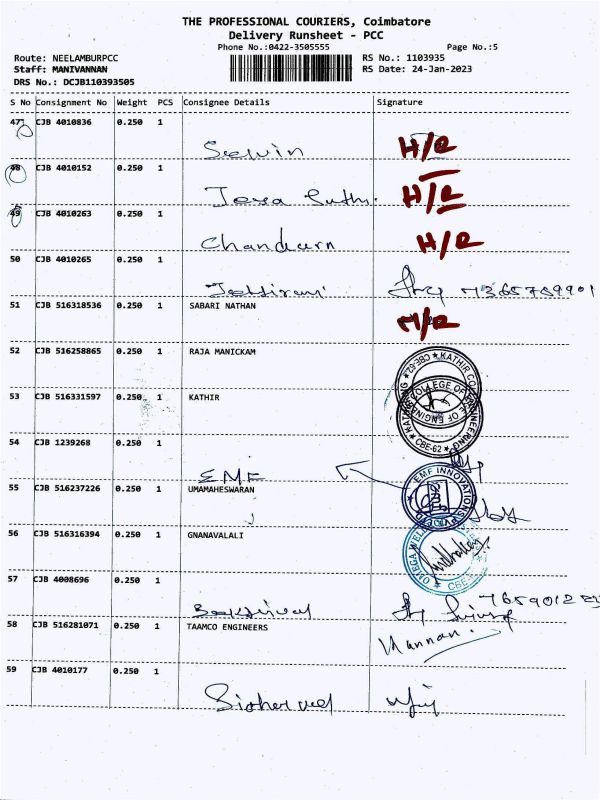 THE PROFESSIONAL COURIERS, Coimbatore
Delivery Runsheet - PCC
Phone No.:0422-3505555
Page No.:5
Route: NEELAMBURPCC
RS No.: 1103935
Staff: MANIVANNAN
RS Date: 24-Jan-2023
DRS No.: DCJB110393505
S No Consignment No Weight PCS Consignee Details Signature
47 CJB 4010836 0.250 1
Selvin H/R
48 CJB 4010152 0.250 1
H/R
49 CJB 4010263 0.250 1
H/R
50 CJB 4010265 0.250 1
51 CJB 516318536 0.250 1 SABARI NATHAN
52 CJB 516258865 0.250 1 RAJA MANICKAM
53 CJB 516331597 0.250 1 KATHIR
CBE-62
54 CJB 1239268 0.250 1
EMF
EMF INNOVATIONS
55 CJB 516237226 0.250 1 UMAMAHESWARAN
56 CJB 516316394 0.250 1 GNANAVALALI
57 CJB 4008696 0.250 1
58 CJB 516281071 0.250 1 TAAMCO ENGINEERS
Mannan.
59 CJB 4010177 0.250 1